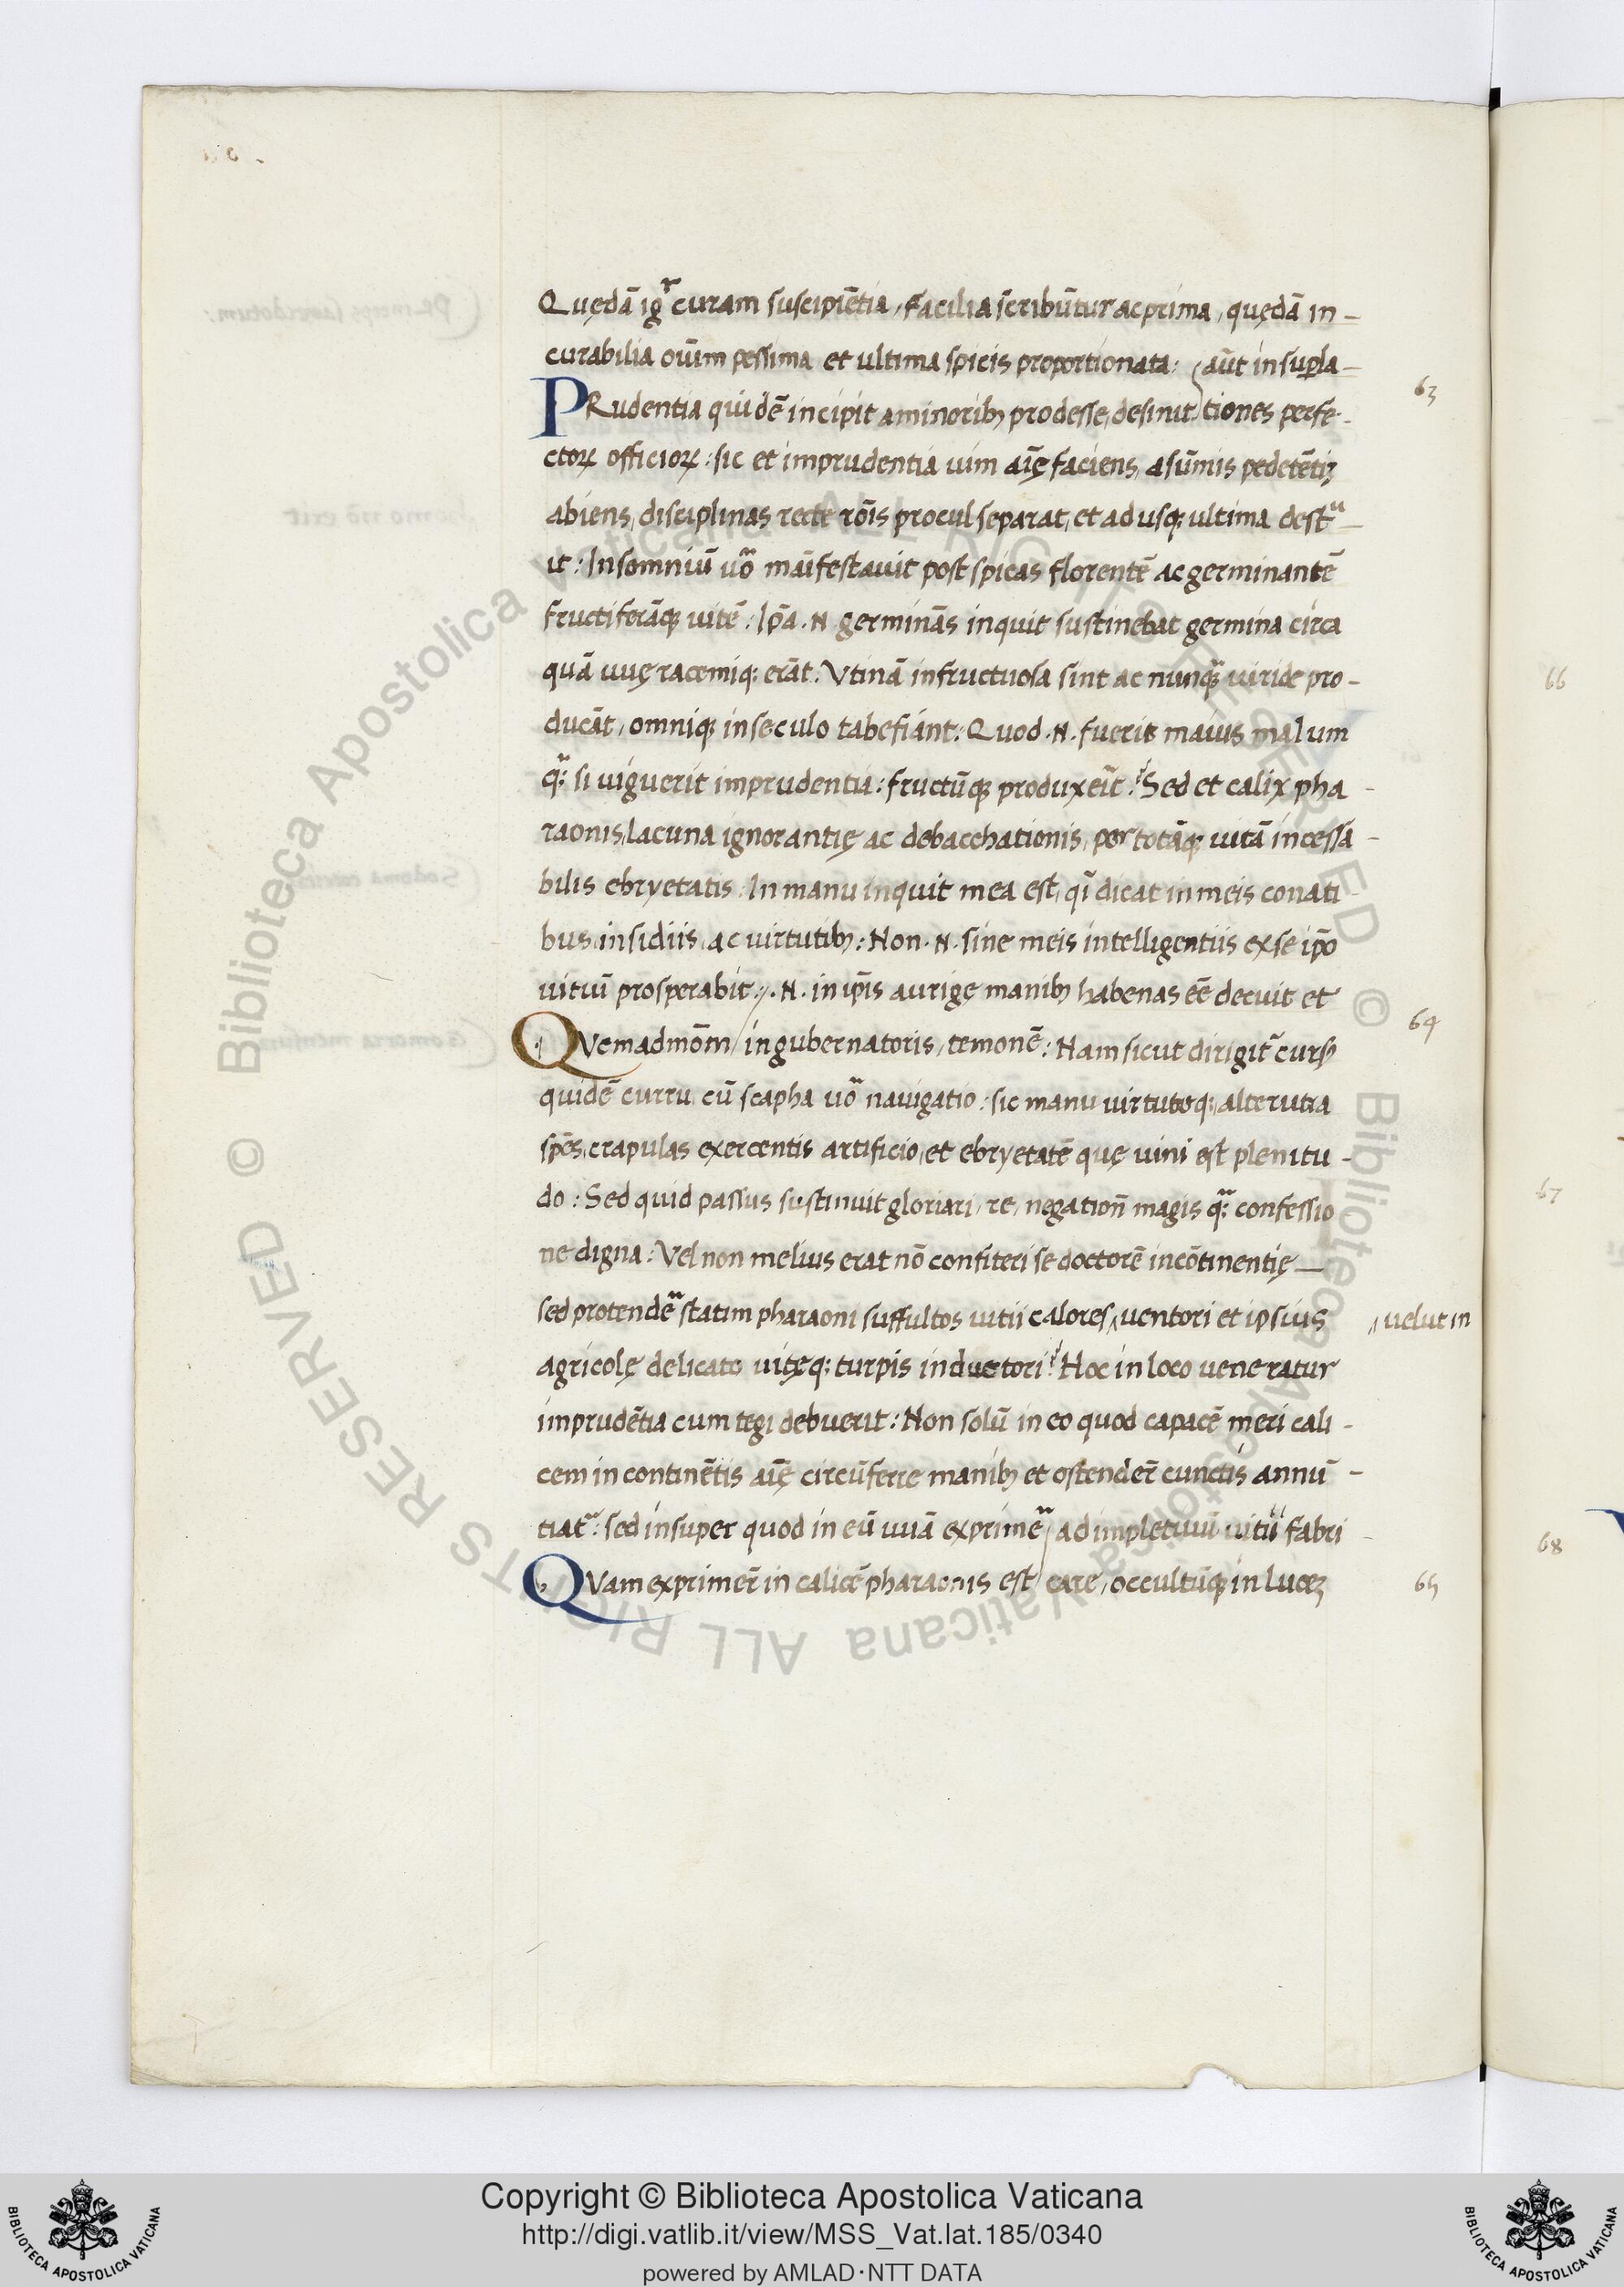 Quędā igr̄ curam suscipiētia, facilia scribūtur ac prima, quędā in-
curabilia oīum pessima et ultima spicis proportionata: aūt in supla-
PRudentia quidē incipit a minorib; prodesse, desinit tiones perfe-
63
ctoꝝ officioꝝ: sic et imprudentia uim aīę faciens, a sūmis pedetētiꝫ
abiens, disciplinas recte rōis procul separat, et ad usq; ultima dest
it: Insomniū uō māifestauit post spicas florentē ac germinantē
fructiferāq; uitē: Ip̄a .N. germinās inquit sustinebat germina circa
quā uuę racemiq; erāt: Vtinā infructuosa sint ac nunq̄ uiride pro-
ducāt, omniq; in seculo tabefiant: Quod .N. fuerit maius malum
q̄: si uiguerit imprudentia: fructūq; produxeit: Sed et calix pha-
raonis, lacuna ignorantię ac debacchationis, per totāq; uitā incessa-
bilis ebryetatis: In manu inquit mea est, qi dicat in meis conati
bus, insidiis, ac uirtutib;: Non .N. sine meis intelligentiis ex se ip̄o
uitiū prosperabit: .N. in ip̄is aurigę manib; habenas eē decuit et
QVemadmōm in gubernatoris, temonē: Nam sicut dirigit̄ curs
64
quidē curru, cū scapha uō nauigatio: sic manu uirtuteq; alterutra
sp̄es, crapulas exercentis artificio, et ebryetatē quę uini est plenitu-
do: Sed quid passus sustinuit gloriari, re, negation̄ magis q̄: confessio
ne digna: Vel non melius erat nō confiteri se doctorē incōtinentię
sed protendē statim pharaoni suffultos uitii calores, uentori et ipsius
uelut in
agricolę delicato uitęq; turpis inductori: Hoc in loco ueneratur
imprudētia cum tegi debuerit: Non solū in eo quod capacē meri cali-
cem incontinētis aīę circūferre manib; et ostender̄ cunctis annū-
tiat̄: sed insuper quod in eū uuā exprimē ad impletiuū uitiū fabri-
QVam exprimer̄ in calicē pharaonis est care, occultūq; in luceꝫ
65
66
67
68
Copyright © Biblioteca Apostolica Vaticana
http://digi.vatlib.it/view/MSS_Vat.lat.185/0340
powered by AMLAD·NTT DATA
BIBLIOTECA APOSTOLICA VATICANA
BIBLIOTECA APOSTOLICA VATICANA
© Biblioteca Apostolica Vaticana ALL RIGHTS RESERVED © Biblioteca Apostolica Vaticana ALL RIGHTS RESERVED